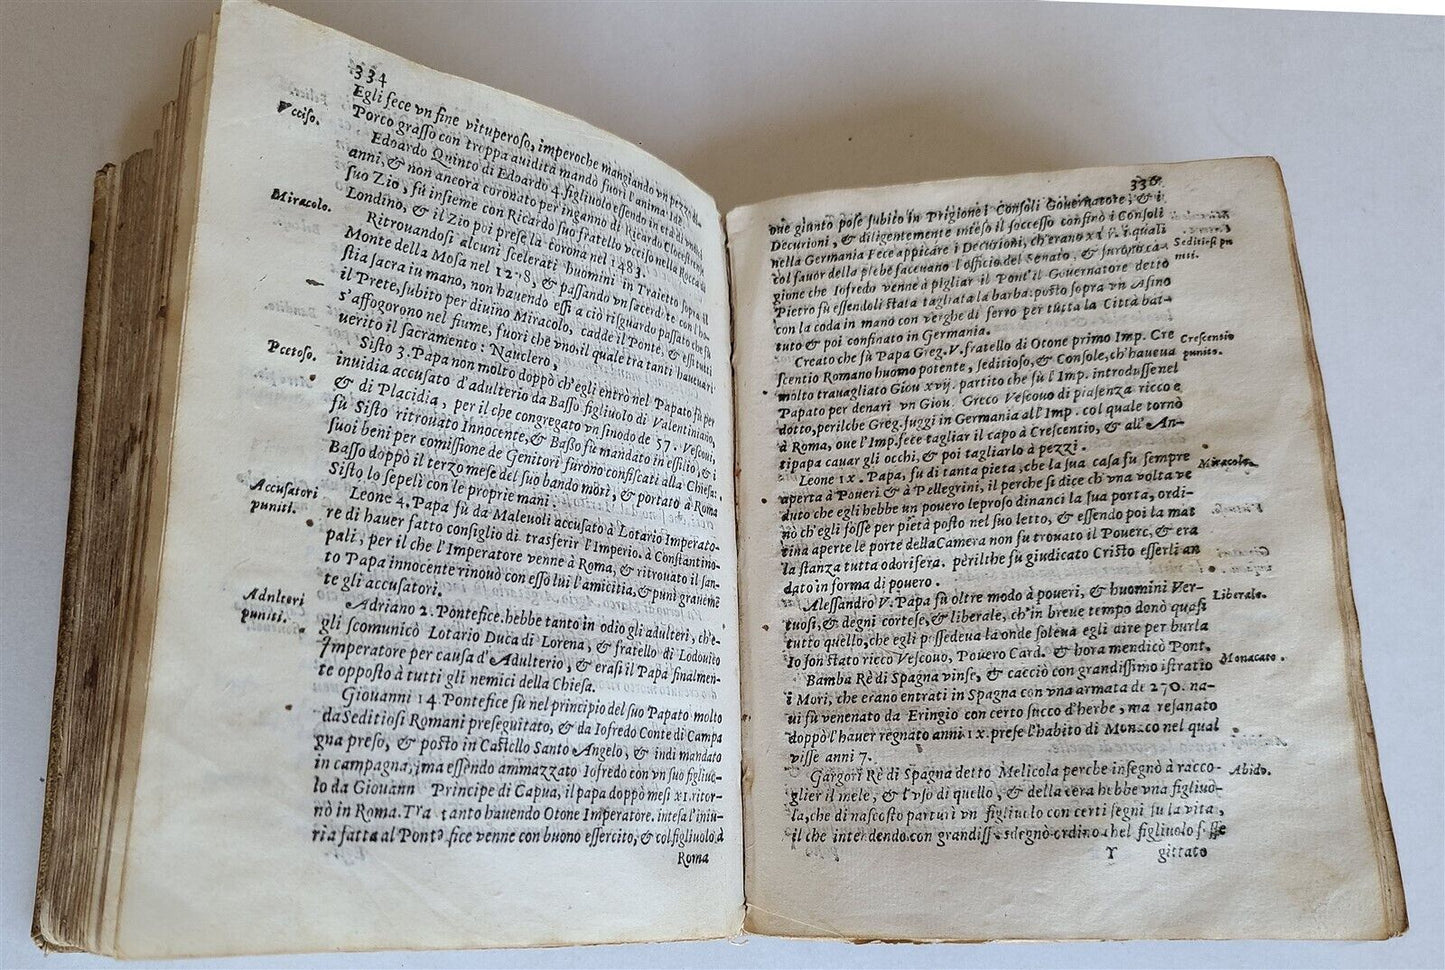 334
Egli fece vn fine vituperoso, imperoche mangiando vn pezzo di
Vcciso.
Porco grasso con troppa auidità mandò fuori l'anima
Edoardo Quinto di Edoardo 4. figliuolo essendo in età di
anni, & non ancora coronato per inganno di Ricardo
suo Zio, fù insieme con Ricardo suo fratello vcciso nella Rocca di
Londino, & il Zio poi prese la corona nel 1483.
Miracolo.
Ritrouandosi alcuni scelerati huomini in Traietto sopra il
Monte della Mosa nel & passando vn sacerdote con l'ho-
stia sacra in mano, non hauendo essi a ciò risguardo passato che fù
il Prete, subito per diuino Miracolo, cadde il Ponte, & essi tutti
s'affogorono nel fiume, fuori che vno, il quale tra tanti haueua ri-
uerito il sacramento: Nauclero,
Pcetoso.
Sisto 3. Papa non molto doppò ch'egli entrò nel Papato fù per
inuidia accusato d'adulterio da Basso figliuolo di Valentiniano,
& di Placidia, per il che congregato vn sinodo de 57. Vescoui,
fù Sisto ritrouato Innocente, & Basso fù mandato in essilio, & i
suoi beni per comissione de Genitori furono confiscati alla Chiesa:
Basso doppò il terzo mese del suo bando morì, & portato à Roma
Sisto lo sepelì con le proprie mani.
Accusatori
puniti.
Leone 4. Papa fù da Maleuoli accusato à Lotario Imperato-
re di hauer fatto consiglio di trasferir l'Imperio. à Constantino-
pali, per il che l'Imperatore venne à Roma, & ritrouato il san-
to Papa innocente rinouò con esso lui l'amicitia, & punì grauemē
te gli accusatori.
Adulteri
puniti.
Adriano 2. Pontefice hebbe tanto in odio gli adulteri, ch'e-
gli scomunicò Lotario Duca di Lorena, & fratello di Lodouico
Imperatore per causa d'Adulterio, & erasi il Papa finalmen-
te opposto à tutti gli nemici della Chiesa.
Giouanni 14 Pontefice fù nel principio del suo Papato molto
da Seditiosi Romani perseguitato, & da Iofredo Conte di Campa
gna preso, & posto in Castello Santo Angelo, & indi mandato
in campagna, ma essendo ammazzato Iofredo con vn suo figliuo-
lo da Giouann Principe di Capua, il papa doppò mesi xi. ritor-
nò in Roma. Tra tanto hauendo Otone Imperatore. intesa l'iniu-
ria fatta al Pontefice venne con buono essercito, & col figliuolo à
Roma
336
oue giunto pose subito in Prigione i Consoli Gouernatore, & i
Decurioni, & diligentemente inteso il soccesso confirò i Consoli
nella Germania Fece appicare i Decurioni, ch'erano i quali
Seditiosi pu
niti.
col fauor della plebe faceuano l'officio del Senato, & furono ca-
gione che Iofredo venne à pigliar il Pont. il Gouernatore detto
Pietro fù essendoli stata tagliata la barba. posto sopra vn Asino
con la coda in mano con verghe di ferro per tutta la Città bat-
tuto & poi confinato in Germania.
Crescentio
punito.
Creato che fù Papa Greg. V. fratello di Otone primo Imp. Cre
scentio Romano huomo potente, seditioso, & Console, ch'haueua
molto trauagliato Giou xvij. partito che fù l'Imp. introdusse nel
Papato per denari vn Giou. Greco Vescouo di piasenza ricco e
dotto, perilche Greg. fuggì in Germania all'Imp. col quale tornò
à Roma, oue l'Imp. fece tagliar il capo à Crescentio, & all'An-
tipapa cauar gli occhi, & poi tagliarlo à pezzi.
Miracolo.
Leone ix. Papa, fù di tanta pietà, che la sua casa fù sempre
aperta à Poueri & à Pellegrini, il perche si dice ch'vna volta ve
duto che egli hebbe vn pouero leproso dinanci la sua porta, ordi-
nò ch'egli fosse per pietà posto nel suo letto, & essendo poi la mat
tina aperte le porte della Camera non fu trouato il Pouero, & era
la stanza tutta odorifera. perilche fù giudicato Cristo esserli an
dato in forma di pouero.
Liberale.
Alessandro V. Papa fù oltre modo à poueri, & huomini Ver-
tuosi, & degni cortese, & liberale, ch'in breue tempo donò quasi
tutto quello, che egli possedeua la onde soleua egli dire per burla
Io son stato ricco Vescouo, Pouero Card. & hora mendicò Pont.
Monacato.
Bamba Rè di Spagna vinse, & cacciò con grandissimo istratio
i Mori, che erano entrati in Spagna con vna armata de 270. na-
ui fù venenato da Eringio con certo succo d'herbe, ma resanato
doppò l'hauer regnato anni. ix. prese l'habito di Monaco nel qual
visse anni 7.
Abido.
Gargori Rè di Spagna detto Melicola perche insegnò à racco-
glier il mele, & l'vso di quello, & della cera hebbe vna figliuo-
la, che di nascosto parturì vn figliuolo con certi segni su la vita,
il che intendendo con grandiss. sdegno ordinò chel figliuolo fosse
Y gittato